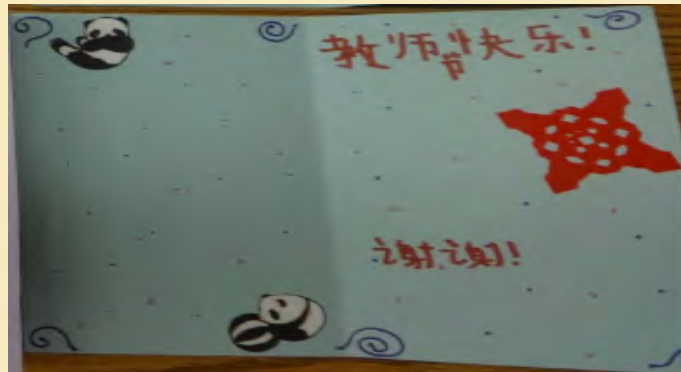 教师节快乐!
谢谢!